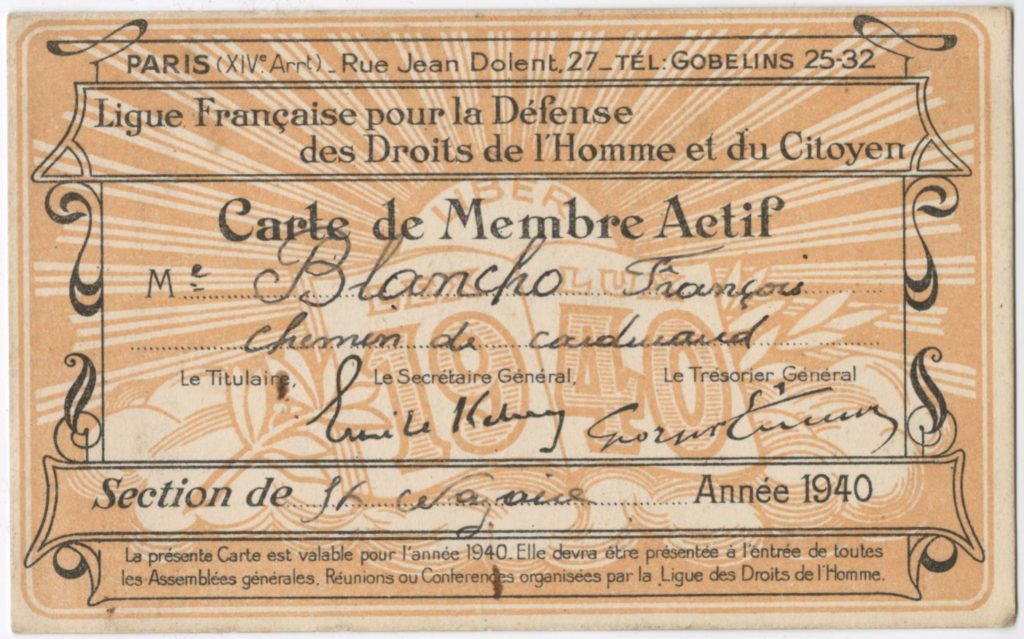 PARIS (XIVe Arrt) _ Rue Jean Dolent, 27 _ TÉL: GOBELINS 25-32
Ligue Française pour la Défense
des Droits de l'Homme et du Citoyen
Carte de Membre Actif
Me Blancho François
chemin de
Le Titulaire, Le Secrétaire Général, Le Trésorier Général
Emile Kahn Georges
1940
Section de St Nazaire Année 1940
La présente Carte est valable pour l'année 1940. Elle devra être présentée à l'éntrée de toutes
les Assemblées générales, Réunions ou Conferences organisées par la Ligue des Droits de l'Homme.